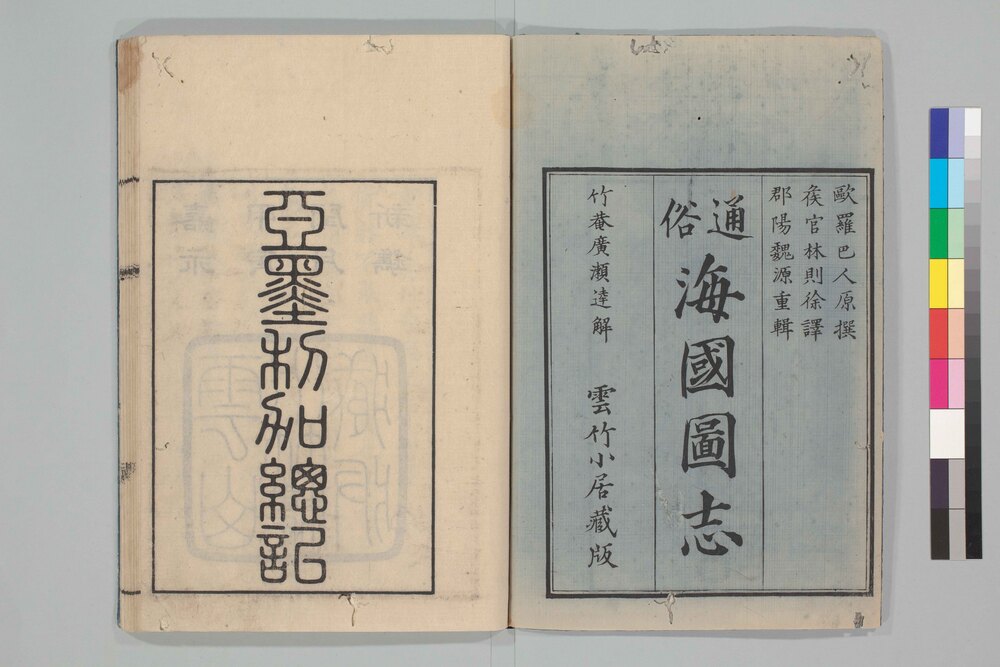 歐羅巴人原撰
矦官林則徐譯
郡陽魏源重輯
通俗
海國圖志
竹菴廣瀬達解
雲竹小居藏版
亞墨利加總記